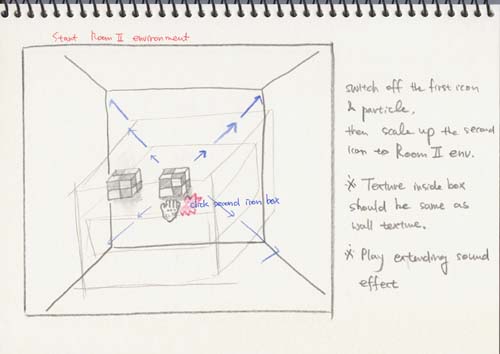 Start Room II environment
click second icon box
switch off the first icon
& particle,
then scale up the second
icon to Room II env.
※ Texture inside box
should be same as
wall texture.
※ Play extending sound
effect